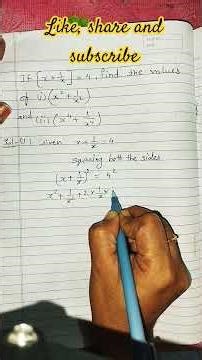 Like, share and
subscribe
If [x + 1/x] = 4, find the values
of (i) (x² + 1/x²)
and (ii) (x⁴ + 1/x⁴)
Sol-(i) given x + 1/x = 4
Squaring both the sides
(x + 1/x)² = 4²
x² + 1/x² + 2 × 1/x ×